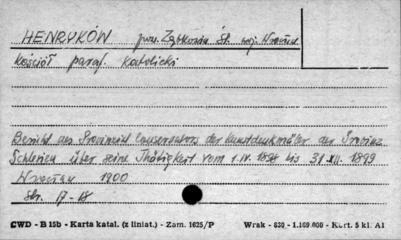 HENRYKÓW pow. Ząbkowice Śl. woj. Wrocław
Kościół paraf. katolicki
Bericht des Provinzial Conservators der Kunstdenkmäler der Provinz
Schlesien über seine Thätigkeit vom 1.IV.1898 bis 31 XII. 1899
Wrocław 1900
Str. 17-18
CWD - B 15b - Karta katal. (z liniat.) - Zam. 1625/P Wrak - 630 - 1.169.000 - Kart. 5 kl. A1